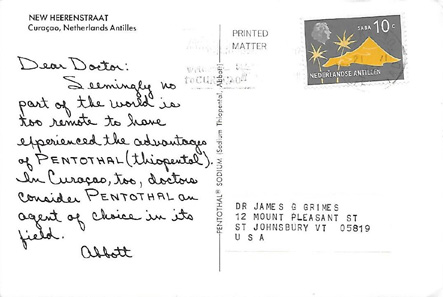 NEW HEERENSTRAAT
Curaçao, Netherlands Antilles
Dear Doctor:
Seemingly no
part of the world is
too remote to have
experienced the advantages
of PENTOTHAL (thiopental).
In Curaçao, too, doctors
consider PENTOTHAL an
agent of choice in its
field.
Abbott
PENTOTHAL® SODIUM (Sodium Thiopental, Abbott)
PRINTED
MATTER
SABA 10 C
NEDERLANDSE ANTILLEN
DR JAMES G GRIMES
12 MOUNT PLEASANT ST
ST JOHNSBURY VT 05819
U S A